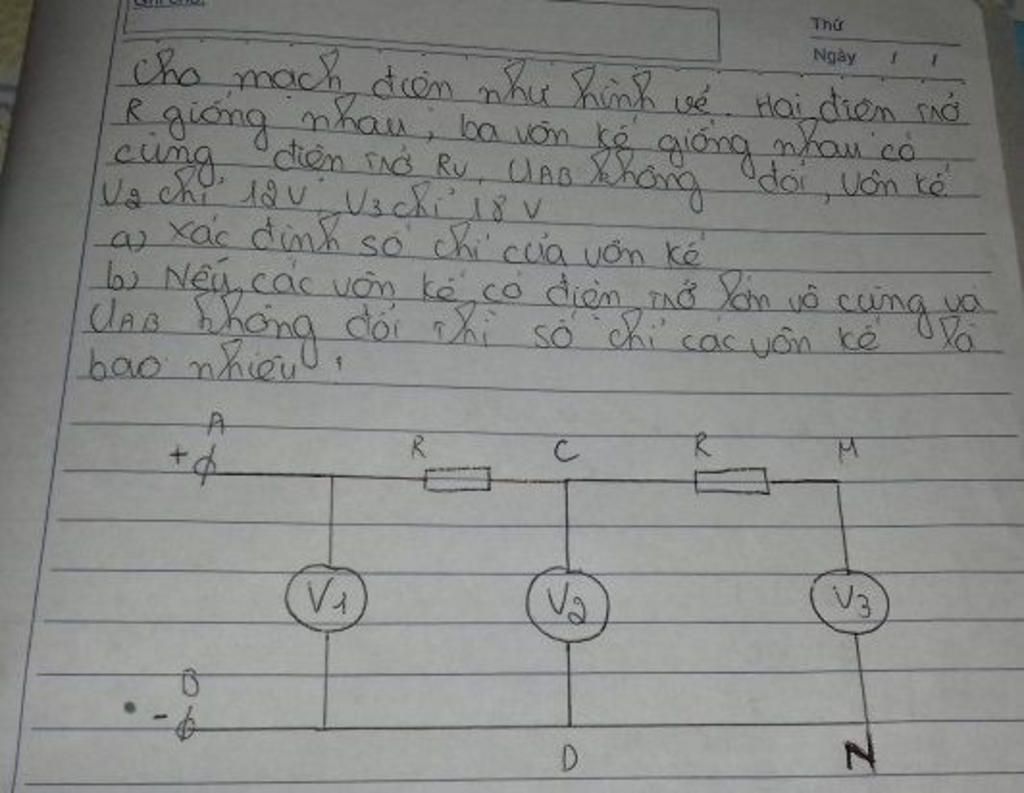 Thứ
Ngày / /
Cho mạch điện như hình vẽ. Hai điện trở
R giống nhau, ba vôn kế giống nhau có
cùng điện trở Rv, UAB không đổi, vôn kế
V2 chỉ 12V, V3 chỉ 18V
a) xác định số chỉ của vôn kế
b) Nếu các vôn kế có điện trở lớn vô cùng và
UAB không đổi thì số chỉ các vôn kế là
bao nhiêu?
A R C R M
+
V1 V2 V3
B
-
D N